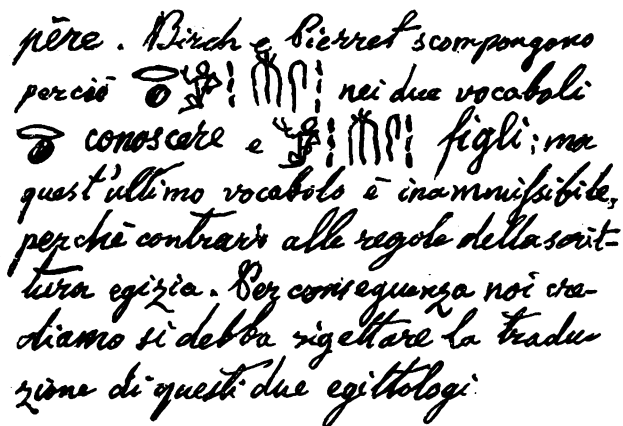 père. Birch e Pierret scompongono
perciò nei due vocaboli
conoscere e figli; ma
quest'ultimo vocabolo è inammissibile,
perchè contrario alle regole della scrit-
tura egizia. Per conseguenza noi cre-
diamo si debba rigettare la tradu-
zione di questi due egittologi